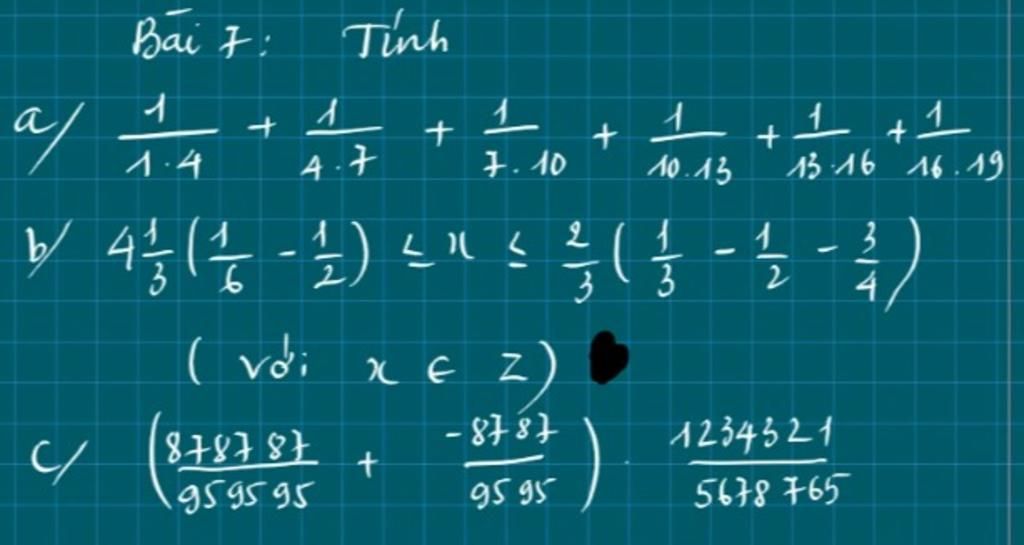 Bài 7: Tính
a/ 1/(1.4) + 1/(4.7) + 1/(7.10) + 1/(10.13) + 1/(13.16) + 1/(16.19)
b/ 4 1/3 (1/6 - 1/2) ≤ x ≤ 2/3 (1/3 - 1/2 - 3/4)
( với x ∈ Z )
c/ (878787/959595 + -8787/9595) . 1234321/5678765